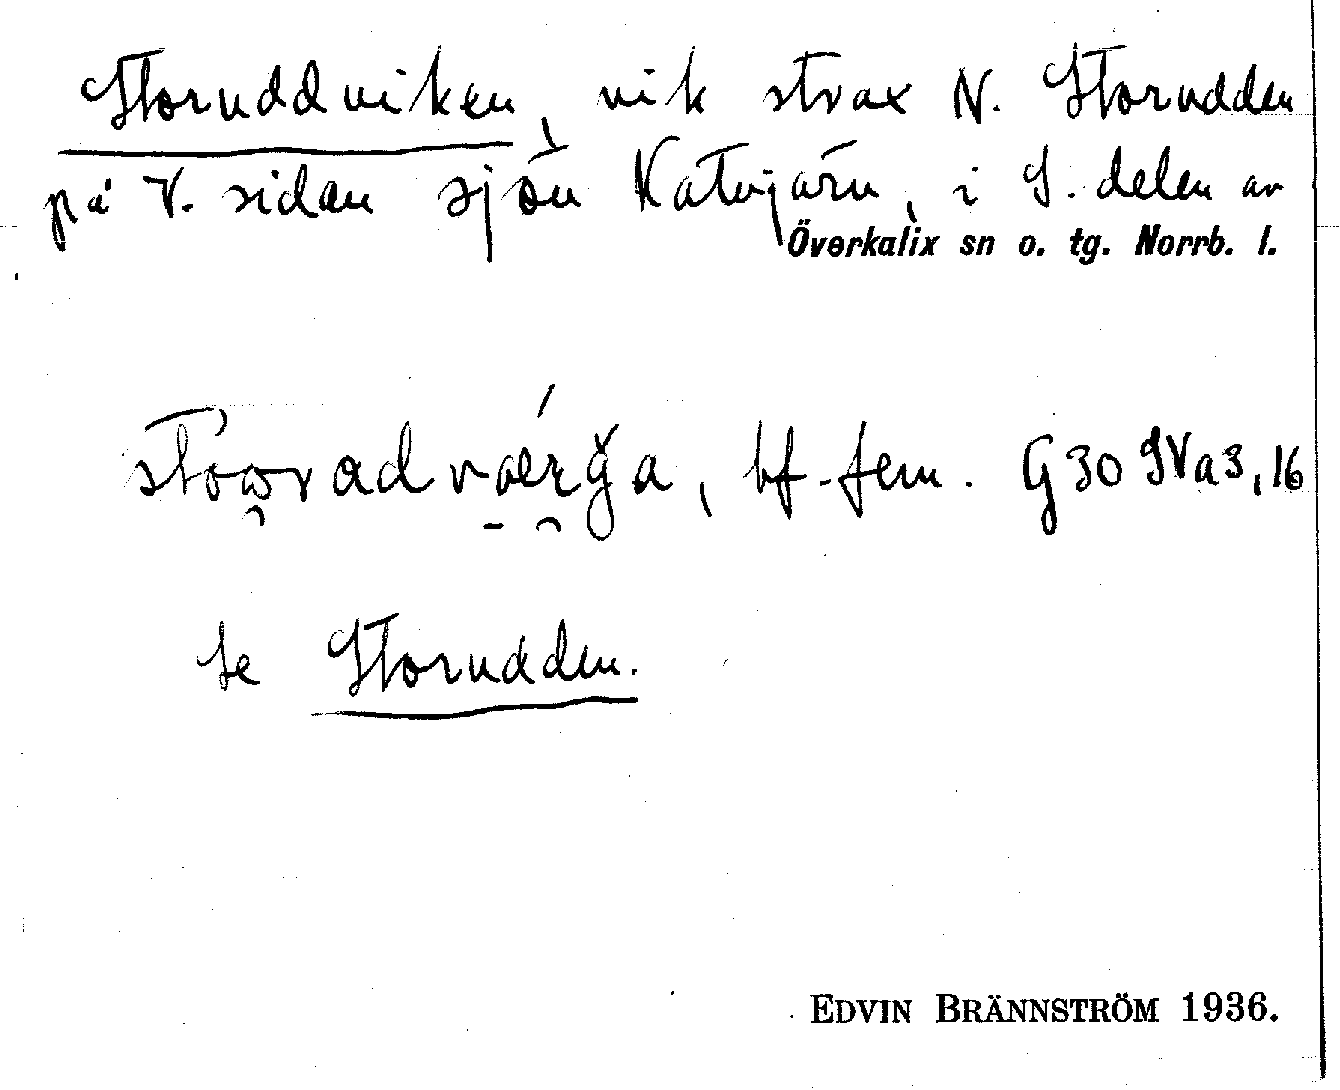 Storuddviken, vik strax N. Storudden
på V. sidan sjön Katvjärn, i S. delen av
Överkalix sn o. tg. Norrb. l.
bf. fem. G30 IVa3,16
Se Storudden.
EDVIN BRÄNNSTRÖM 1936.